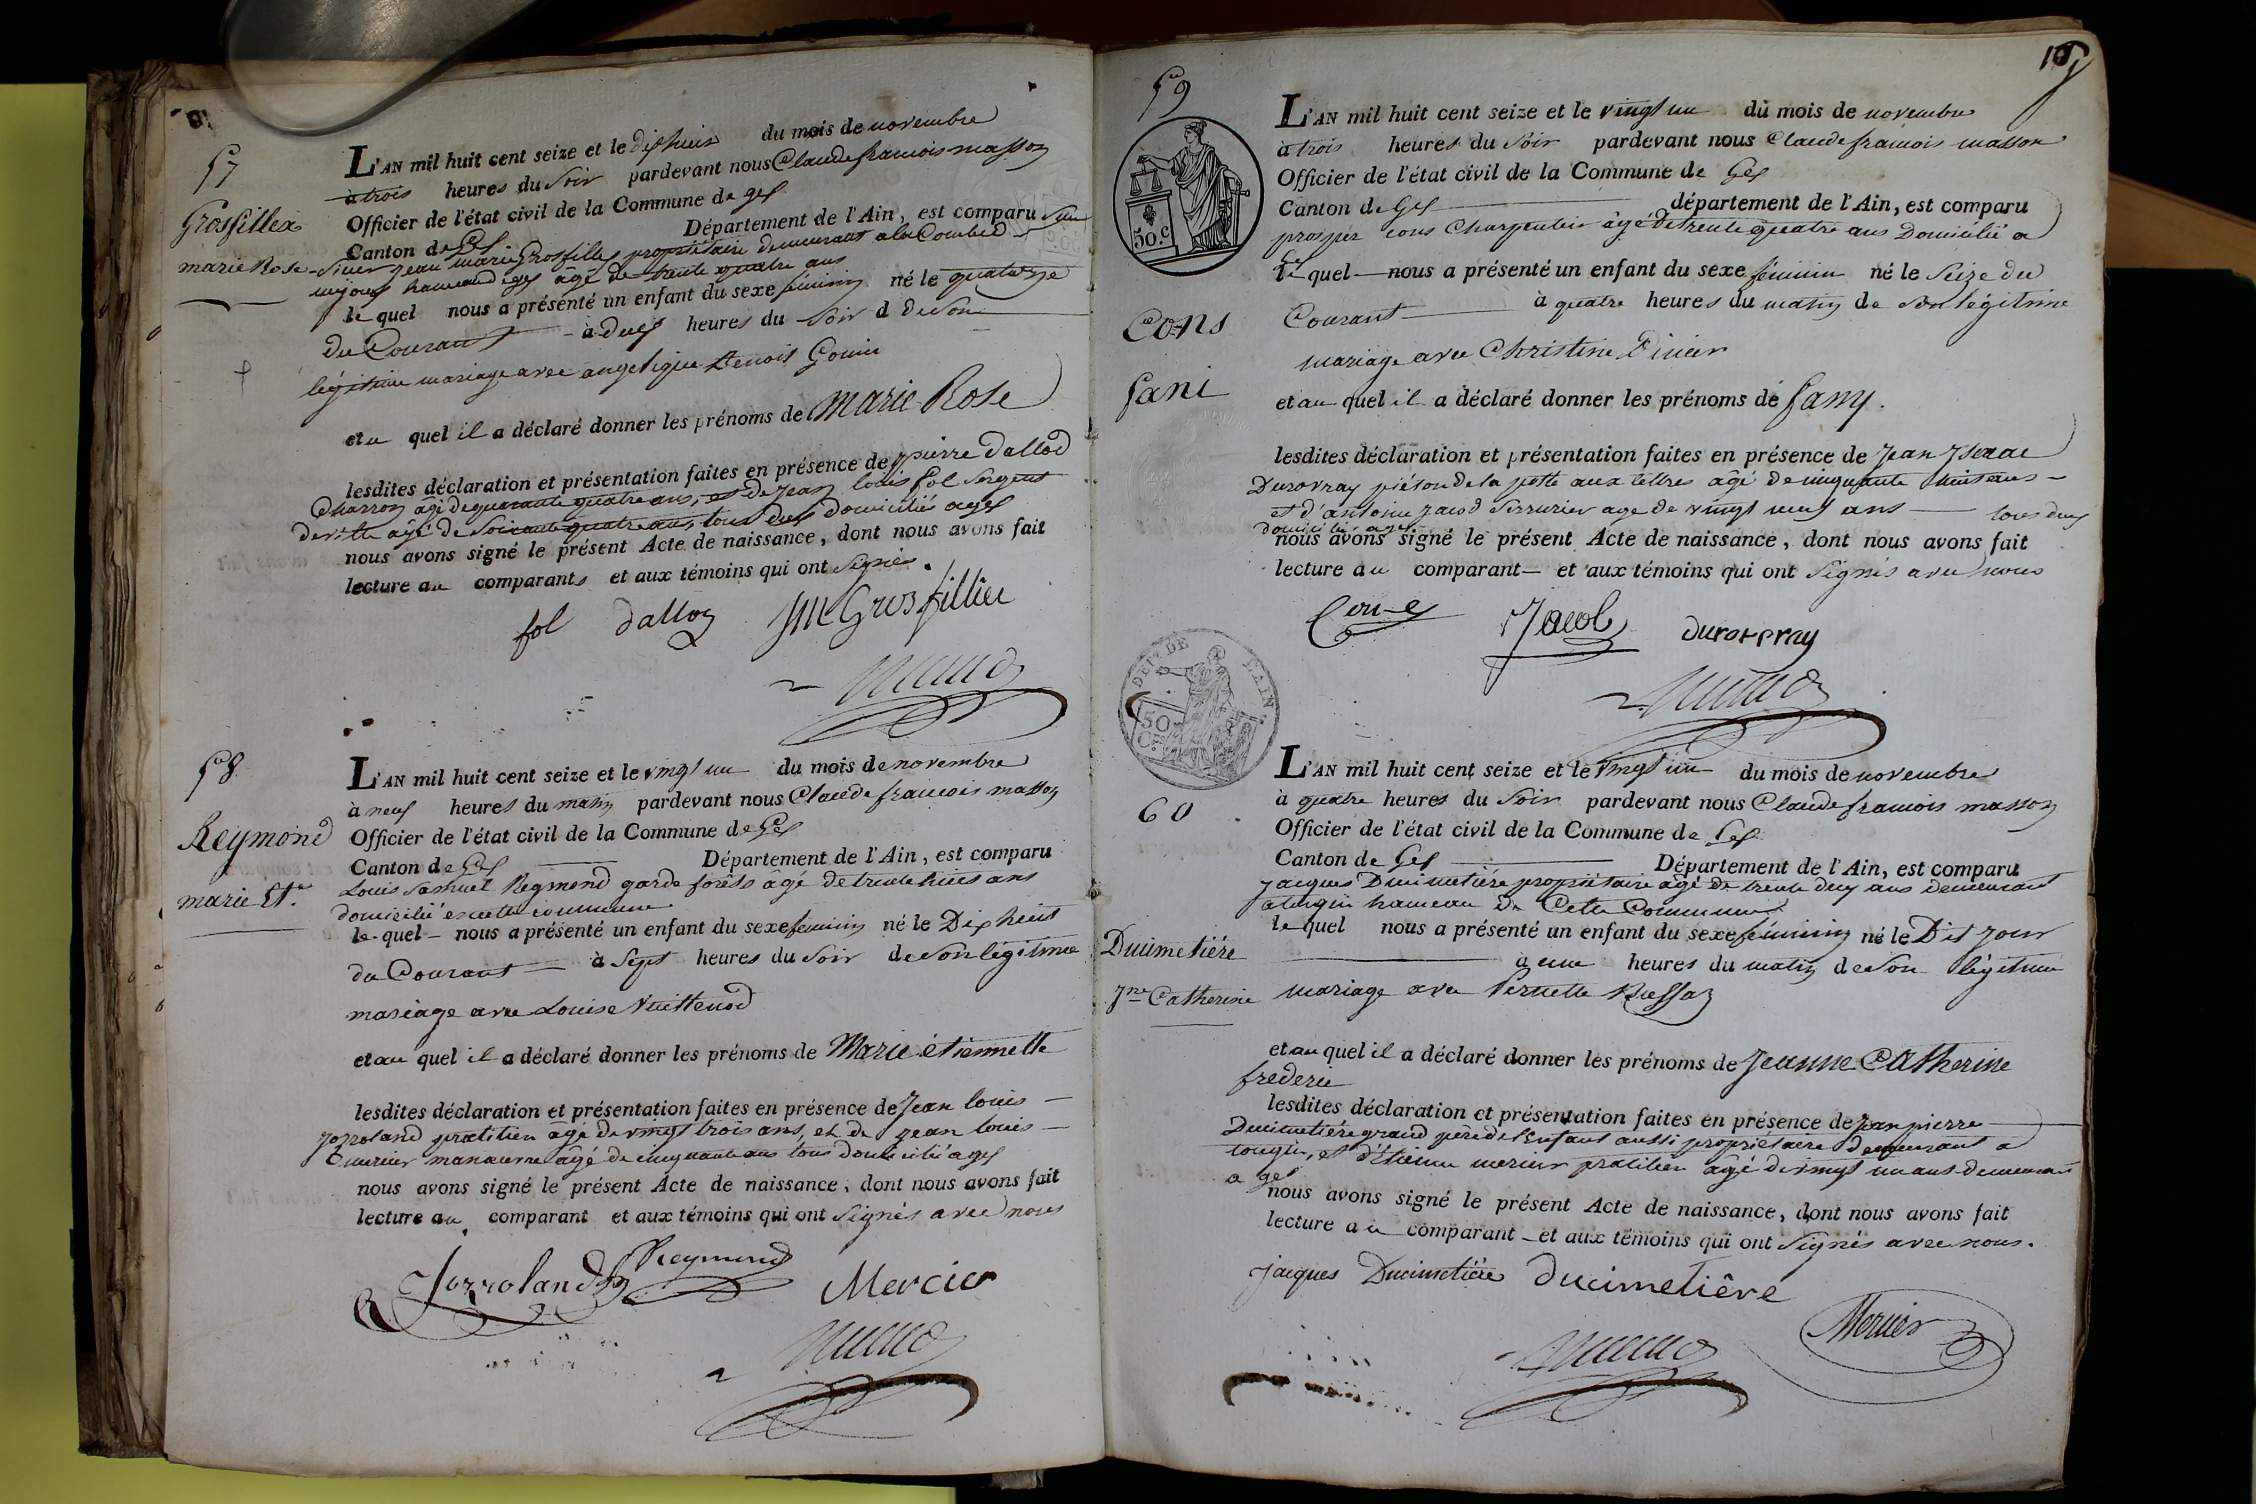 57
Grosfillex
marie Rose
L'AN mil huit cent seize et le dixhuit du mois de novembre
à trois heures du soir pardevant nous Claude francois masson
Officier de l'état civil de la Commune de gex
Canton de Gex Département de l'Ain, est comparu
jean marie Grosfillex propriétaire demeurant a la Combe
hameau de gex âgé de trente quatre ans
le quel nous a présenté un enfant du sexe féminin né le quatorze
du Courant à deux heures du soir d de son
légitime mariage avec angelique Benoit Gouin
et au quel il a déclaré donner les prénoms de Marie Rose
lesdites déclaration et présentation faites en présence de pierre dalloz
Charron âgé de quarante quatre ans, et de jean louis fol sergent
de ville âgé de soixante quatre ans, tous deux domiciliés a gex
nous avons signé le présent Acte de naissance, dont nous avons fait
lecture au comparants et aux témoins qui ont signés.
fol dalloz JM Grosfillex
58
Reymond
marie Et.e
L'AN mil huit cent seize et le vingt un du mois de novembre
à neuf heures du matin pardevant nous Claude francois masson
Officier de l'état civil de la Commune de Gex
Canton de Gex Département de l'Ain, est comparu
Louis Samuel Reymond garde forêts âgé de trente huit ans
domicilié en cette commune
le quel nous a présenté un enfant du sexe féminin né le Dix huit
du Courant à sept heures du soir de son légitime
mariage avec Louise Vuittenod
et au quel il a déclaré donner les prénoms de Marie étiennette
lesdites déclaration et présentation faites en présence de Jean louis
Jorroland pratitien âgé de vingt trois ans, et de jean louis
Mercier manoeuvre âgé de cinquante ans tous domicilié a gex
nous avons signé le présent Acte de naissance, dont nous avons fait
lecture au comparant et aux témoins qui ont signés avec nous
Jorroland Reymond Mercier
59
50.c
Cons
fani
L'AN mil huit cent seize et le vingt un du mois de novembre
à trois heures du soir pardevant nous Claude francois masson
Officier de l'état civil de la Commune de Gex
Canton de Gex département de l'Ain, est comparu
prosper cons Charpentier âgé de trente quatre ans Domicilié a
Gex
le quel nous a présenté un enfant du sexe féminin né le seize du
Courant à quatre heures du matin de son légitime
mariage avec Christine
et au quel il a déclaré donner les prénoms de fany.
lesdites déclaration et présentation faites en présence de Jean Isaac
Durovray piéton de la poste aux lettres âgé de cinquante huit ans
et d'antoine jacob Serrurier age de vingt neuf ans tous deux
domiciliés a gex
nous avons signé le présent Acte de naissance, dont nous avons fait
lecture au comparant et aux témoins qui ont signés avec nous
Cons Jacob durovray
DEPT DE L'AIN.
50 C.
60
Ducimetiére
Jne Catherine
L'AN mil huit cent seize et le vingt un du mois de novembre
à quatre heures du soir pardevant nous Claude francois masson
Officier de l'état civil de la Commune de Gex
Canton de Gex Département de l'Ain, est comparu
jacques Ducimetiére propriétaire âgé de trente deux ans demeurant
a tougin hameau de Cette Commune
le quel nous a présenté un enfant du sexe féminin né le Dit jour
à une heures du matin de son légitime
mariage avec Pernette
et au quel il a déclaré donner les prénoms de Jeanne Catherine
frederie
lesdites déclaration et présentation faites en présence de jean pierre
Ducimetiére grand père de l'enfant aussi propriétaire demeurant a
tougin, et d'étienne mercier pratitien âgé de vingt un ans demeurant
a gex
nous avons signé le présent Acte de naissance, dont nous avons fait
lecture au comparant et aux témoins qui ont signés avec nous.
jacques Ducimetiére Ducimetiêre Mercier